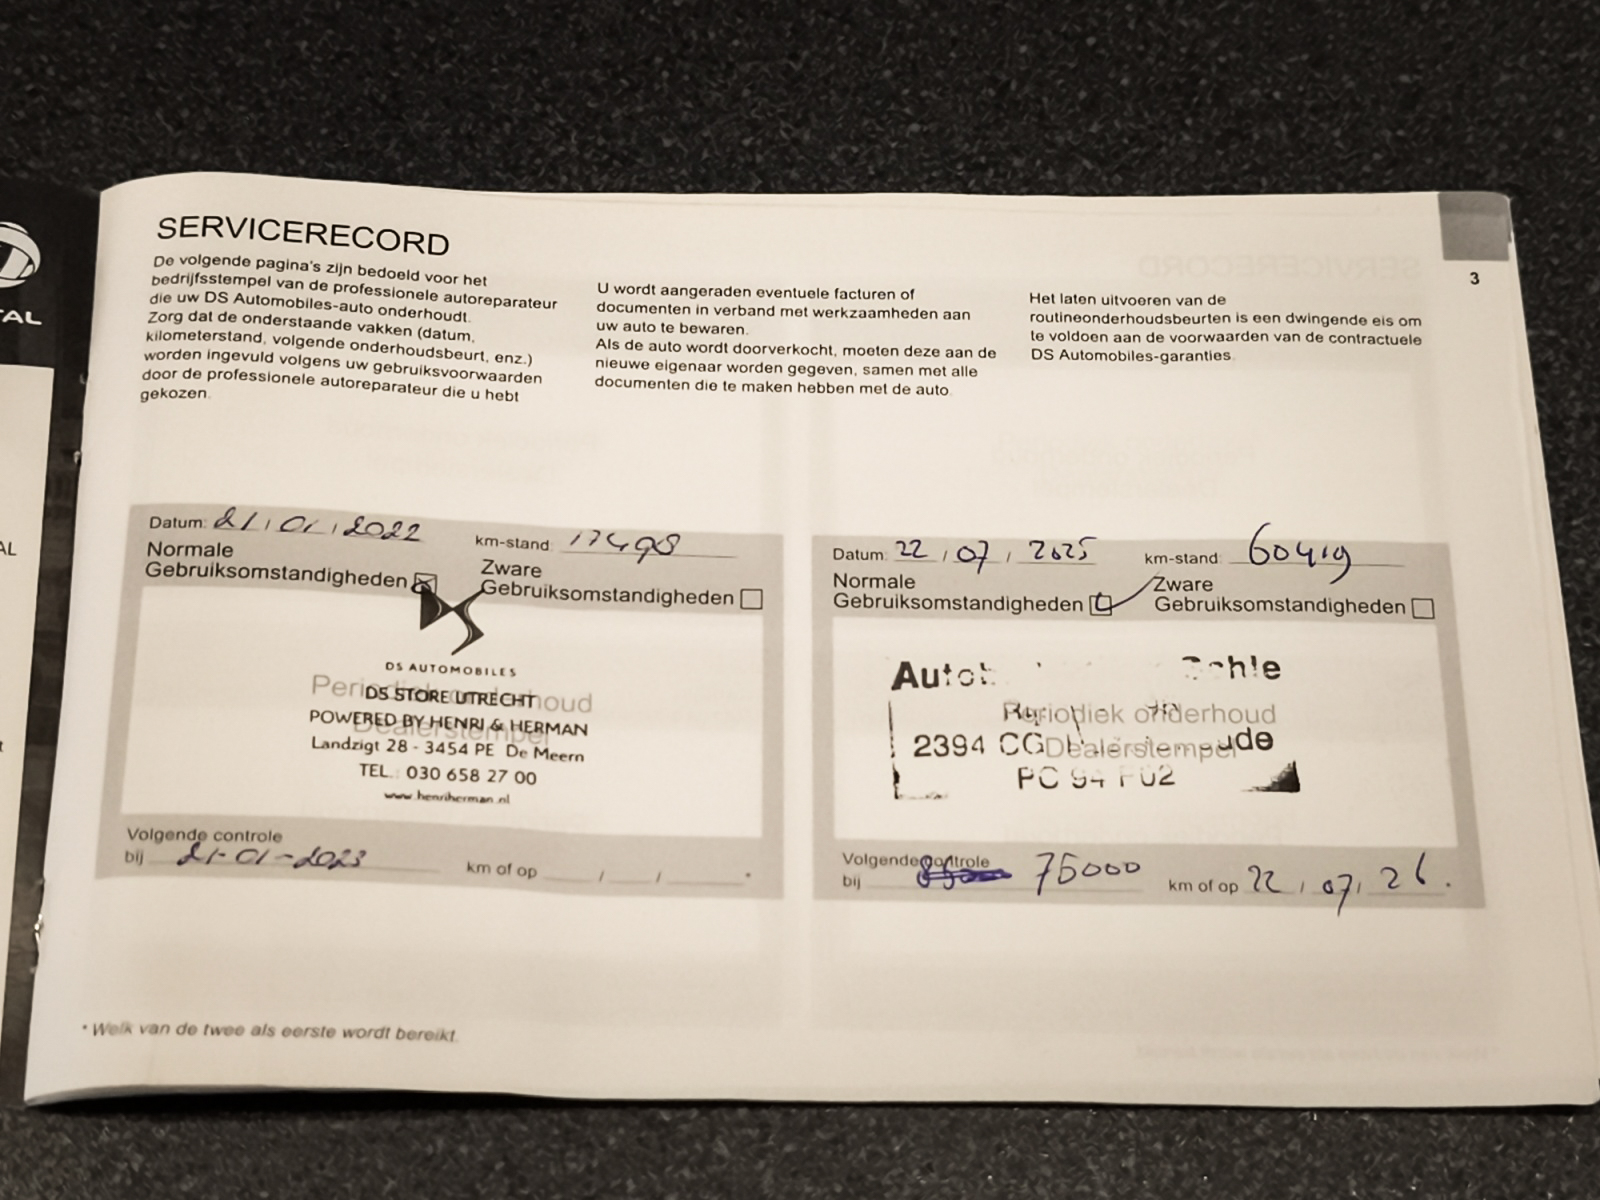 TAL
AL
SERVICERECORD
De volgende pagina's zijn bedoeld voor het
bedrijfsstempel van de professionele autoreparateur
die uw DS Automobiles-auto onderhoudt.
Zorg dat de onderstaande vakken (datum,
kilometerstand, volgende onderhoudsbeurt, enz.)
worden ingevuld volgens uw gebruiksvoorwaarden
door de professionele autoreparateur die u hebt
gekozen.
U wordt aangeraden eventuele facturen of
documenten in verband met werkzaamheden aan
uw auto te bewaren.
Als de auto wordt doorverkocht, moeten deze aan de
nieuwe eigenaar worden gegeven, samen met alle
documenten die te maken hebben met de auto.
3
Het laten uitvoeren van de
routineonderhoudsbeurten is een dwingende eis om
te voldoen aan de voorwaarden van de contractuele
DS Automobiles-garanties.
Datum: 21 / 01 / 2022 km-stand: 17498
Normale
Gebruiksomstandigheden
Zware
Gebruiksomstandigheden
DS AUTOMOBILES
Periodiek onderhoud
Dealerstempel
DS STORE UTRECHT
POWERED BY HENRI & HERMAN
Landzigt 28 - 3454 PE De Meern
TEL.: 030 658 27 00
www.henriherman.nl
Volgende controle
bij 21-01-2023 km of op / / *
Datum: 22 / 07 / 2025 km-stand: 60419
Normale
Gebruiksomstandigheden
Zware
Gebruiksomstandigheden
Periodiek onderhoud
2394 CG
Dealerstempel
Volgende controle
bij 75000 km of op 22 / 07 / 26.
* Welk van de twee als eerste wordt bereikt.